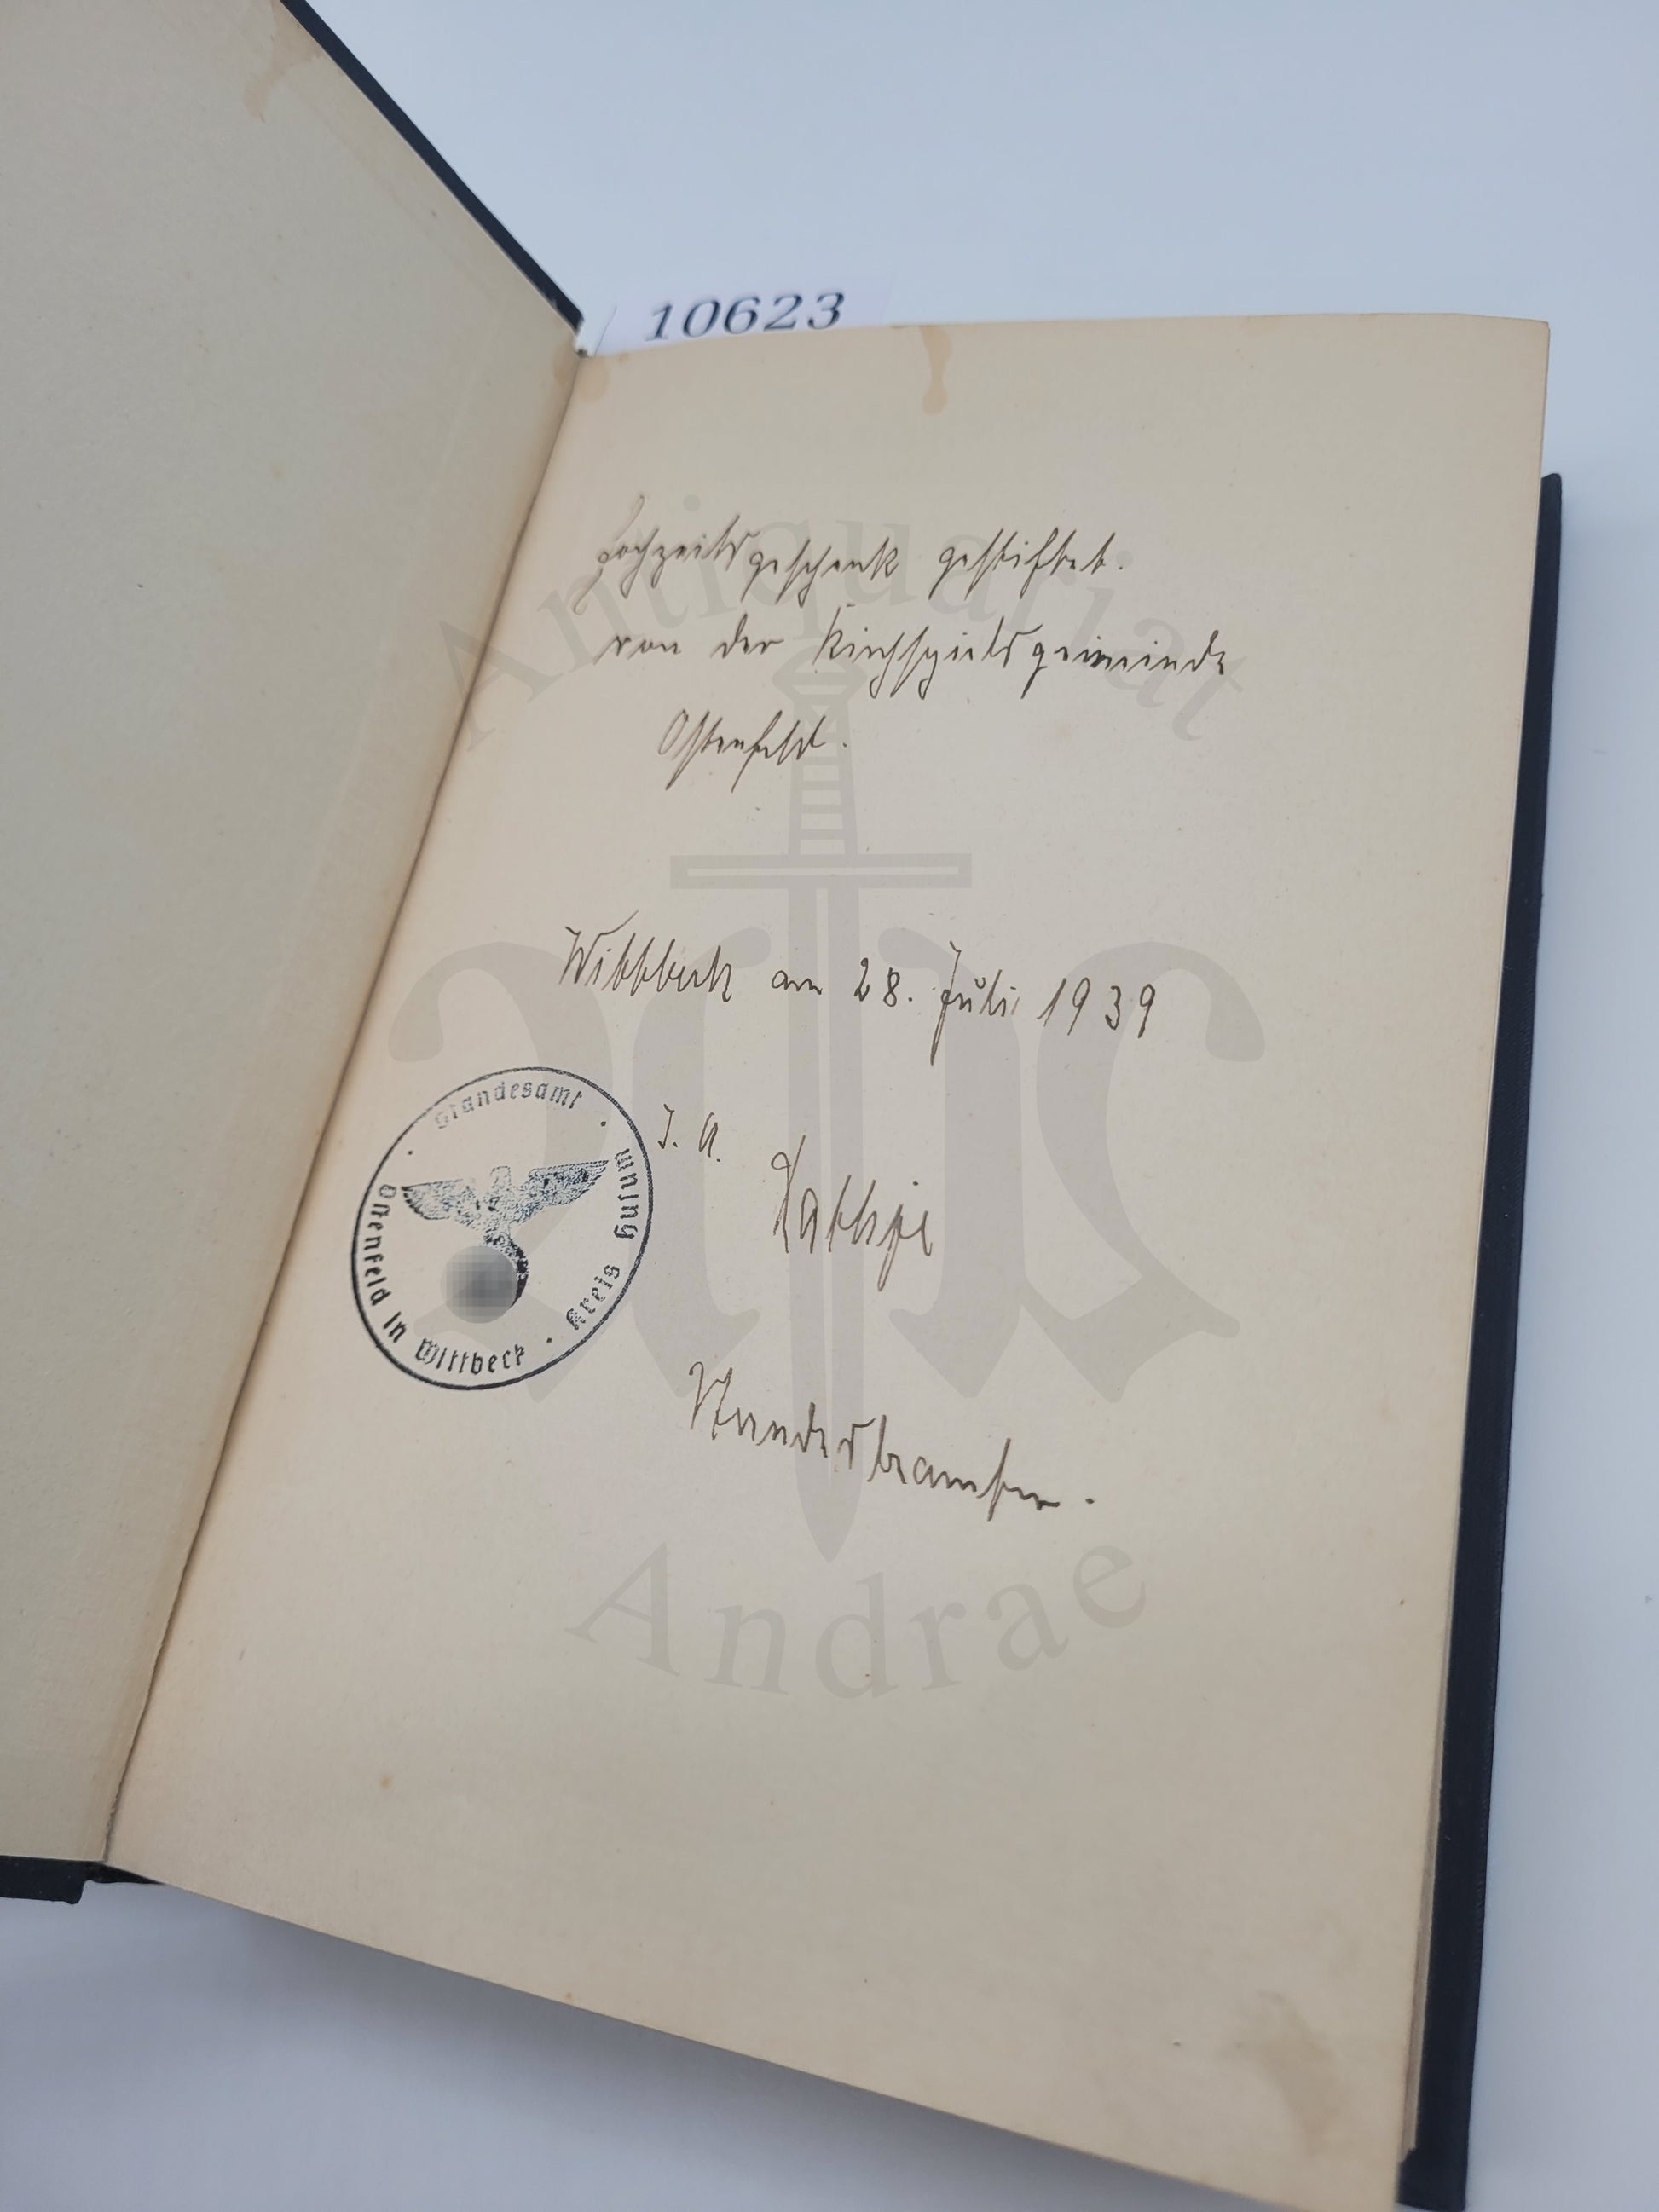 10623
Hochzeitsgeschenk gestiftet.
von der Kirchspielsgemeinde
Ostenfeld.
Wittbek am 28. Juli 1939
I. A.
Standesbeamter.
Standesamt
Ostenfeld in Wittbeck · Kreis Husum
Antiquariat
Andrae